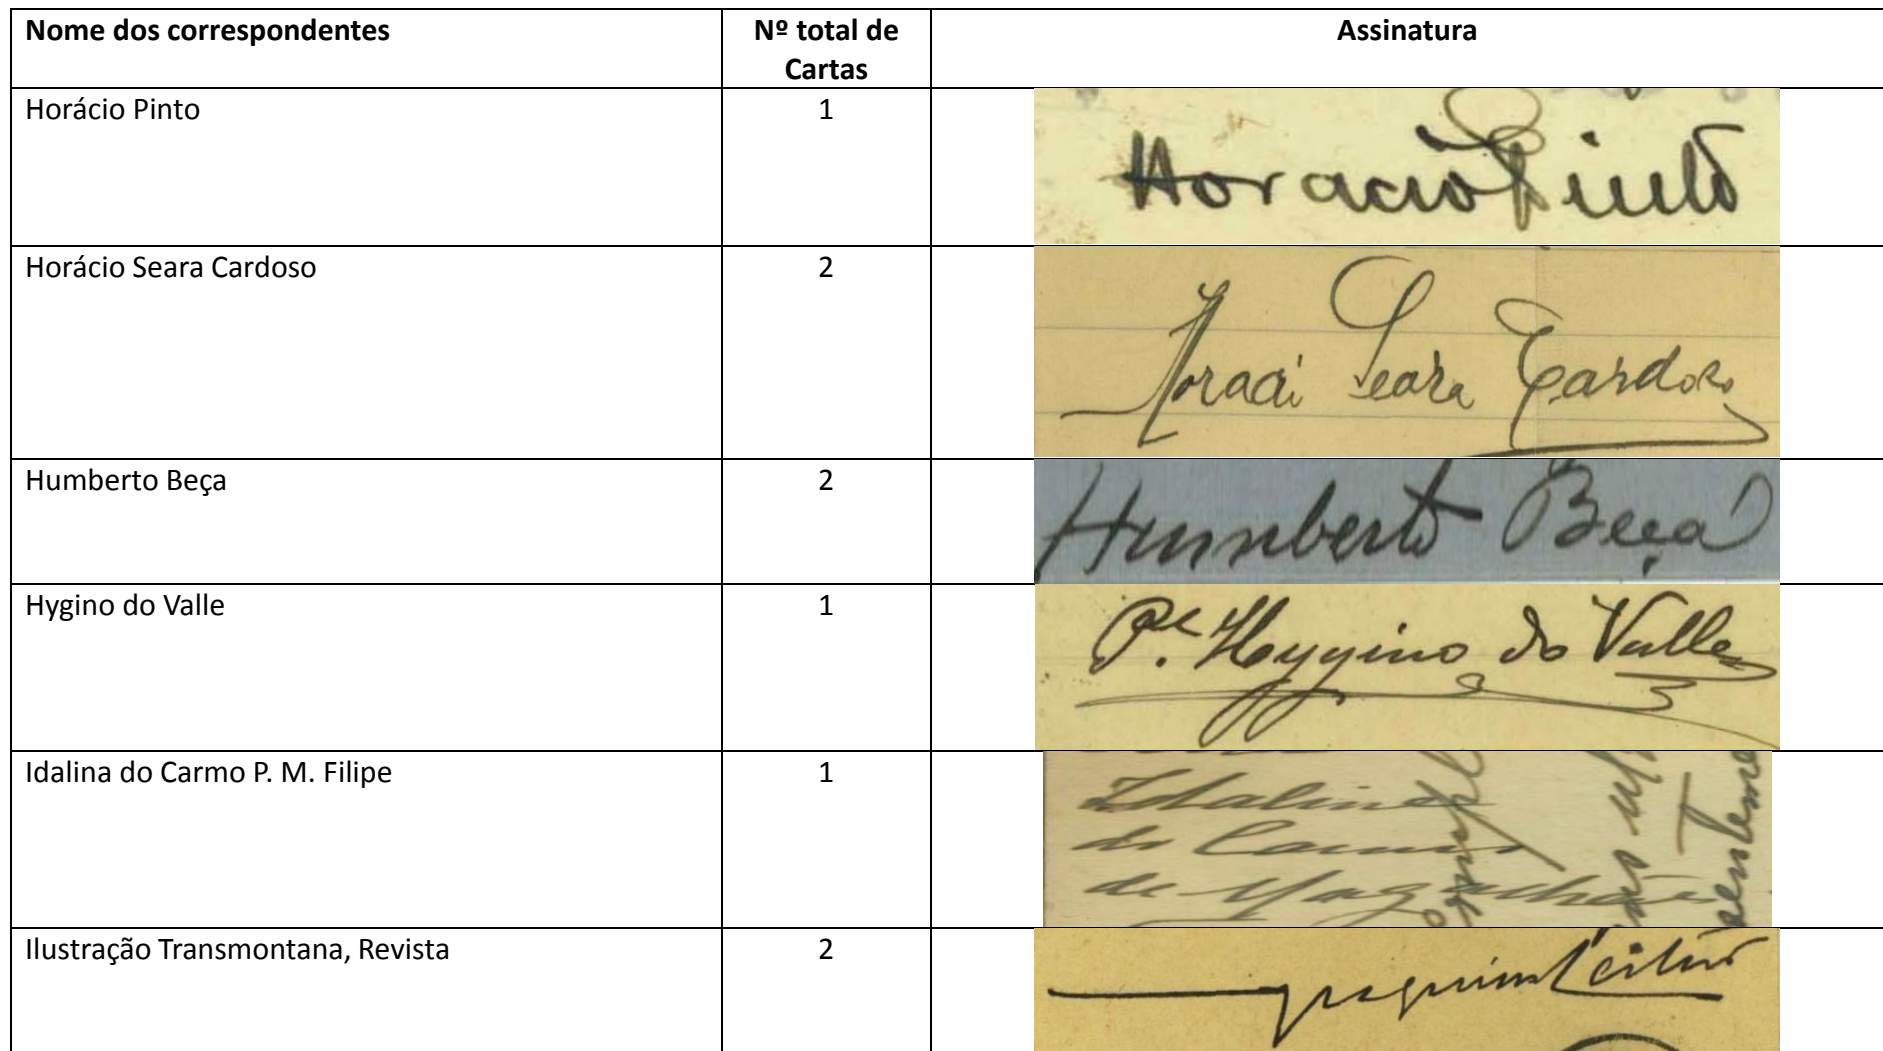 Nome dos correspondentes
Nº total de
Cartas
Assinatura
Horácio Pinto
1
Horacio Pinto
Horácio Seara Cardoso
2
Seara Cardoso
Humberto Beça
2
Humberto Beça
Hygino do Valle
1
Pe. Hygino do Valle
Idalina do Carmo P. M. Filipe
1
Idalina
do Carmo
de Magalhães
Ilustração Transmontana, Revista
2
Joaquim Leitão